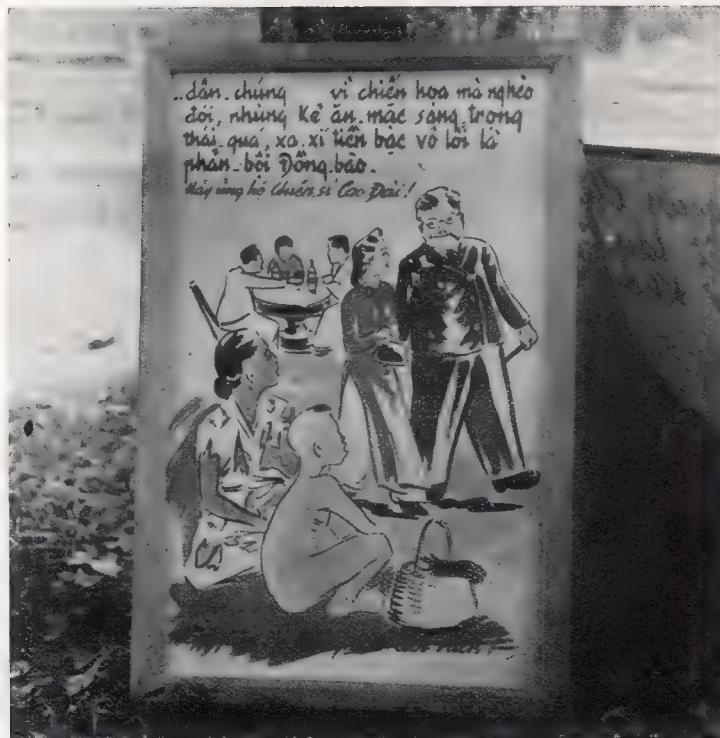 ..dân.chúng vì chiến họa mà nghèo
đói, nhũng Kẻ ăn.mặc sang.trọng
thái.quá, xa.xỉ tiền bạc vô lối là
phản.bội Đồng.bào.
Hãy ủng hộ Chiến.sĩ Cao.Đài!